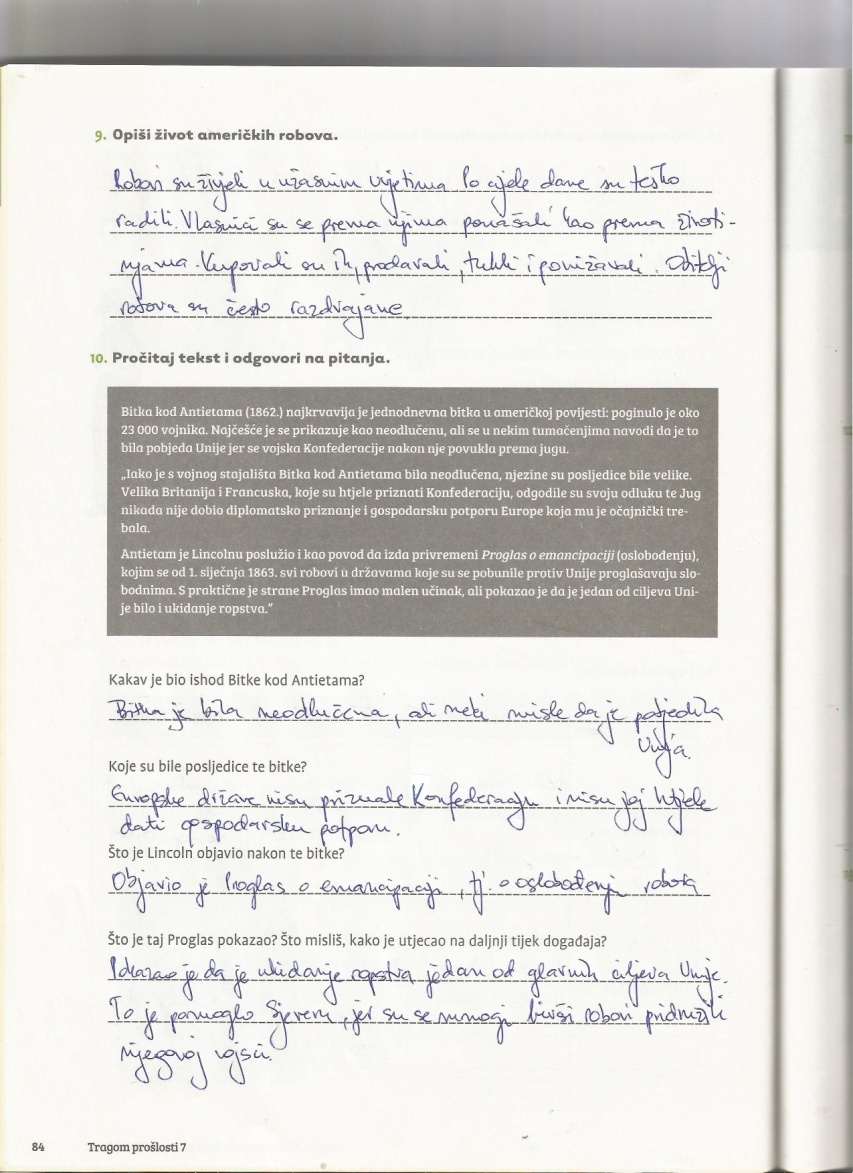 9. Opiši život američkih robova.
Robovi su živjeli u užasnim uvjetima. Po cijele dane su teško
radili. Vlasnici su se prema njima ponašali kao prema životi-
njama. Kupovali su ih, prodavali, tukli i ponižavali. Obitelji
robova su često razdvajane.
10. Pročitaj tekst i odgovori na pitanja.
Bitka kod Antietama (1862.) najkrvavija je jednodnevna bitka u američkoj povijesti: poginulo je oko
23 000 vojnika. Najčešće je se prikazuje kao neodlučenu, ali se u nekim tumačenjima navodi da je to
bila pobjeda Unije jer se vojska Konfederacije nakon nje povukla prema jugu.
„Iako je s vojnog stajališta Bitka kod Antietama bila neodlučena, njezine su posljedice bile velike.
Velika Britanija i Francuska, koje su htjele priznati Konfederaciju, odgodile su svoju odluku te Jug
nikada nije dobio diplomatsko priznanje i gospodarsku potporu Europe koja mu je očajnički tre-
bala.
Antietam je Lincolnu poslužio i kao povod da izda privremeni Proglas o emancipaciji (oslobođenju),
kojim se od 1. siječnja 1863. svi robovi u državama koje su se pobunile protiv Unije proglašavaju slo-
bodnima. S praktične je strane Proglas imao malen učinak, ali pokazao je da je jedan od ciljeva Uni-
je bilo i ukidanje ropstva.“
Kakav je bio ishod Bitke kod Antietama?
Bitka je bila neodlučena, ali neki misle da je pobjedila
Unija.
Koje su bile posljedice te bitke?
Europske države nisu priznale Konfederaciju i nisu joj htjele
dati gospodarsku potporu.
Što je Lincoln objavio nakon te bitke?
Objavio je Proglas o emancipaciji, tj. o oslobođenju robova
Što je taj Proglas pokazao? Što misliš, kako je utjecao na daljnji tijek događaja?
Pokazao je da je ukidanje ropstva jedan od glavnih ciljeva Unije.
To je pomoglo Sjeveru, jer su se mnogi bivši robovi pridružili
njegovoj vojsci.
84 Tragom prošlosti 7